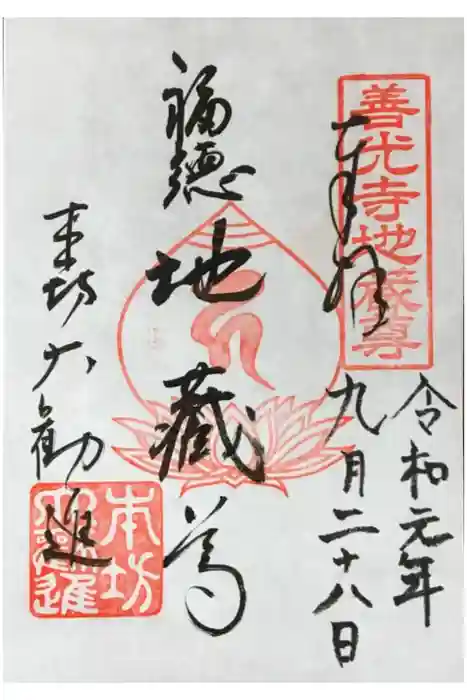 善光寺地蔵尊
奉拝
令和元年
九月二十八日
福徳
地蔵尊
本坊大勧進
本坊
大勧進